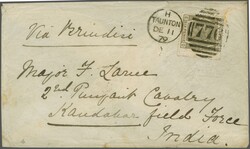 Via Brindisi
H
TAUNTON
DE 11
79
776
Major F. Lance
2nd Punjaub Cavalry
Kandahar field Force
India.